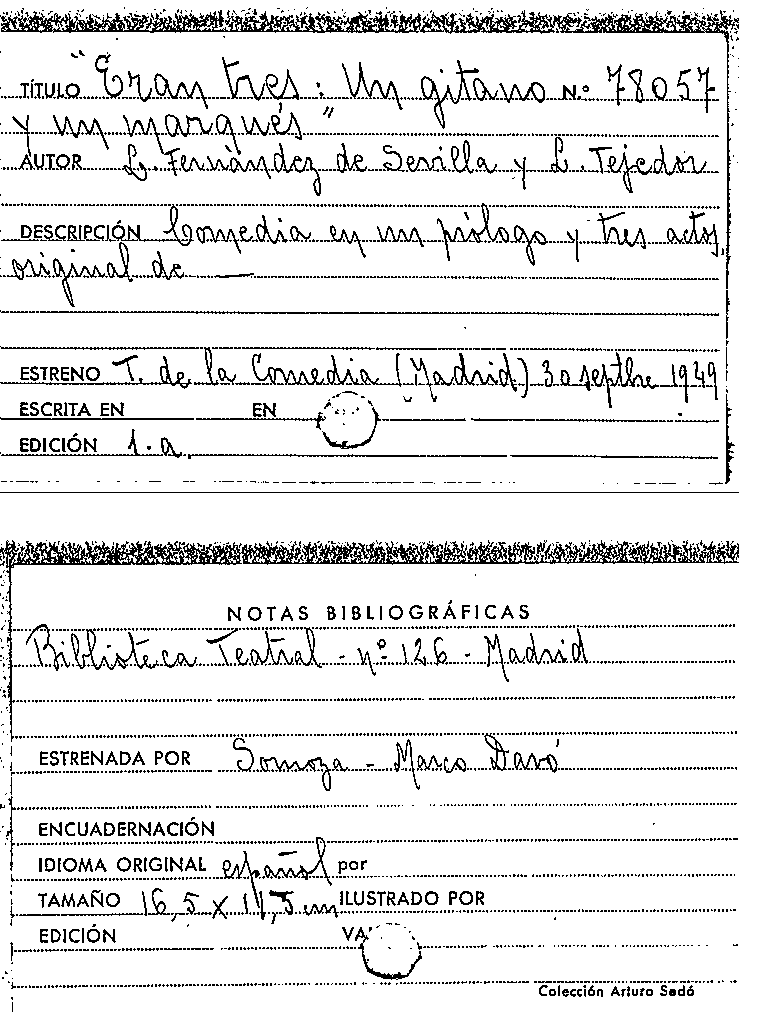 TÍTULO "Eran tres: Un gitano N.º 78057
y un marqués"
AUTOR L. Fernández de Sevilla y L. Tejedor
DESCRIPCIÓN Comedia en un prólogo y tres actos,
original de —
ESTRENO T. de la Comedia (Madrid) 30 septbre 1949
ESCRITA EN EN
EDICIÓN 1.a.
NOTAS BIBLIOGRÁFICAS
Biblioteca Teatral - nº 126 - Madrid
ESTRENADA POR Somoza - Marco Davó
ENCUADERNACIÓN
IDIOMA ORIGINAL español por
TAMAÑO 16,5 x 11,5 cm ILUSTRADO POR
EDICIÓN
Colección Arturo Sedó